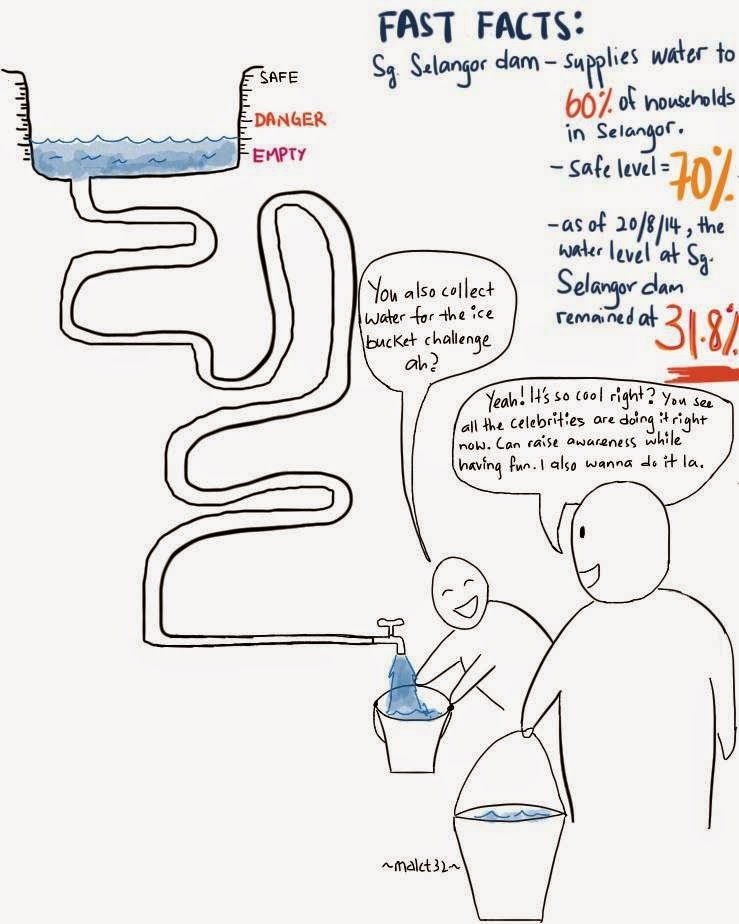 FAST FACTS:
Sg. Selangor dam - supplies water to
60% of households
in Selangor.
- safe level = 70%
- as of 20/8/14, the
water level at Sg.
Selangor dam
remained at 31.8%
SAFE
DANGER
EMPTY
You also collect
water for the ice
bucket challenge
ah?
Yeah! It's so cool right? You see
all the celebrities are doing it right
now. Can raise awareness while
having fun. I also wanna do it la.
~malct32~